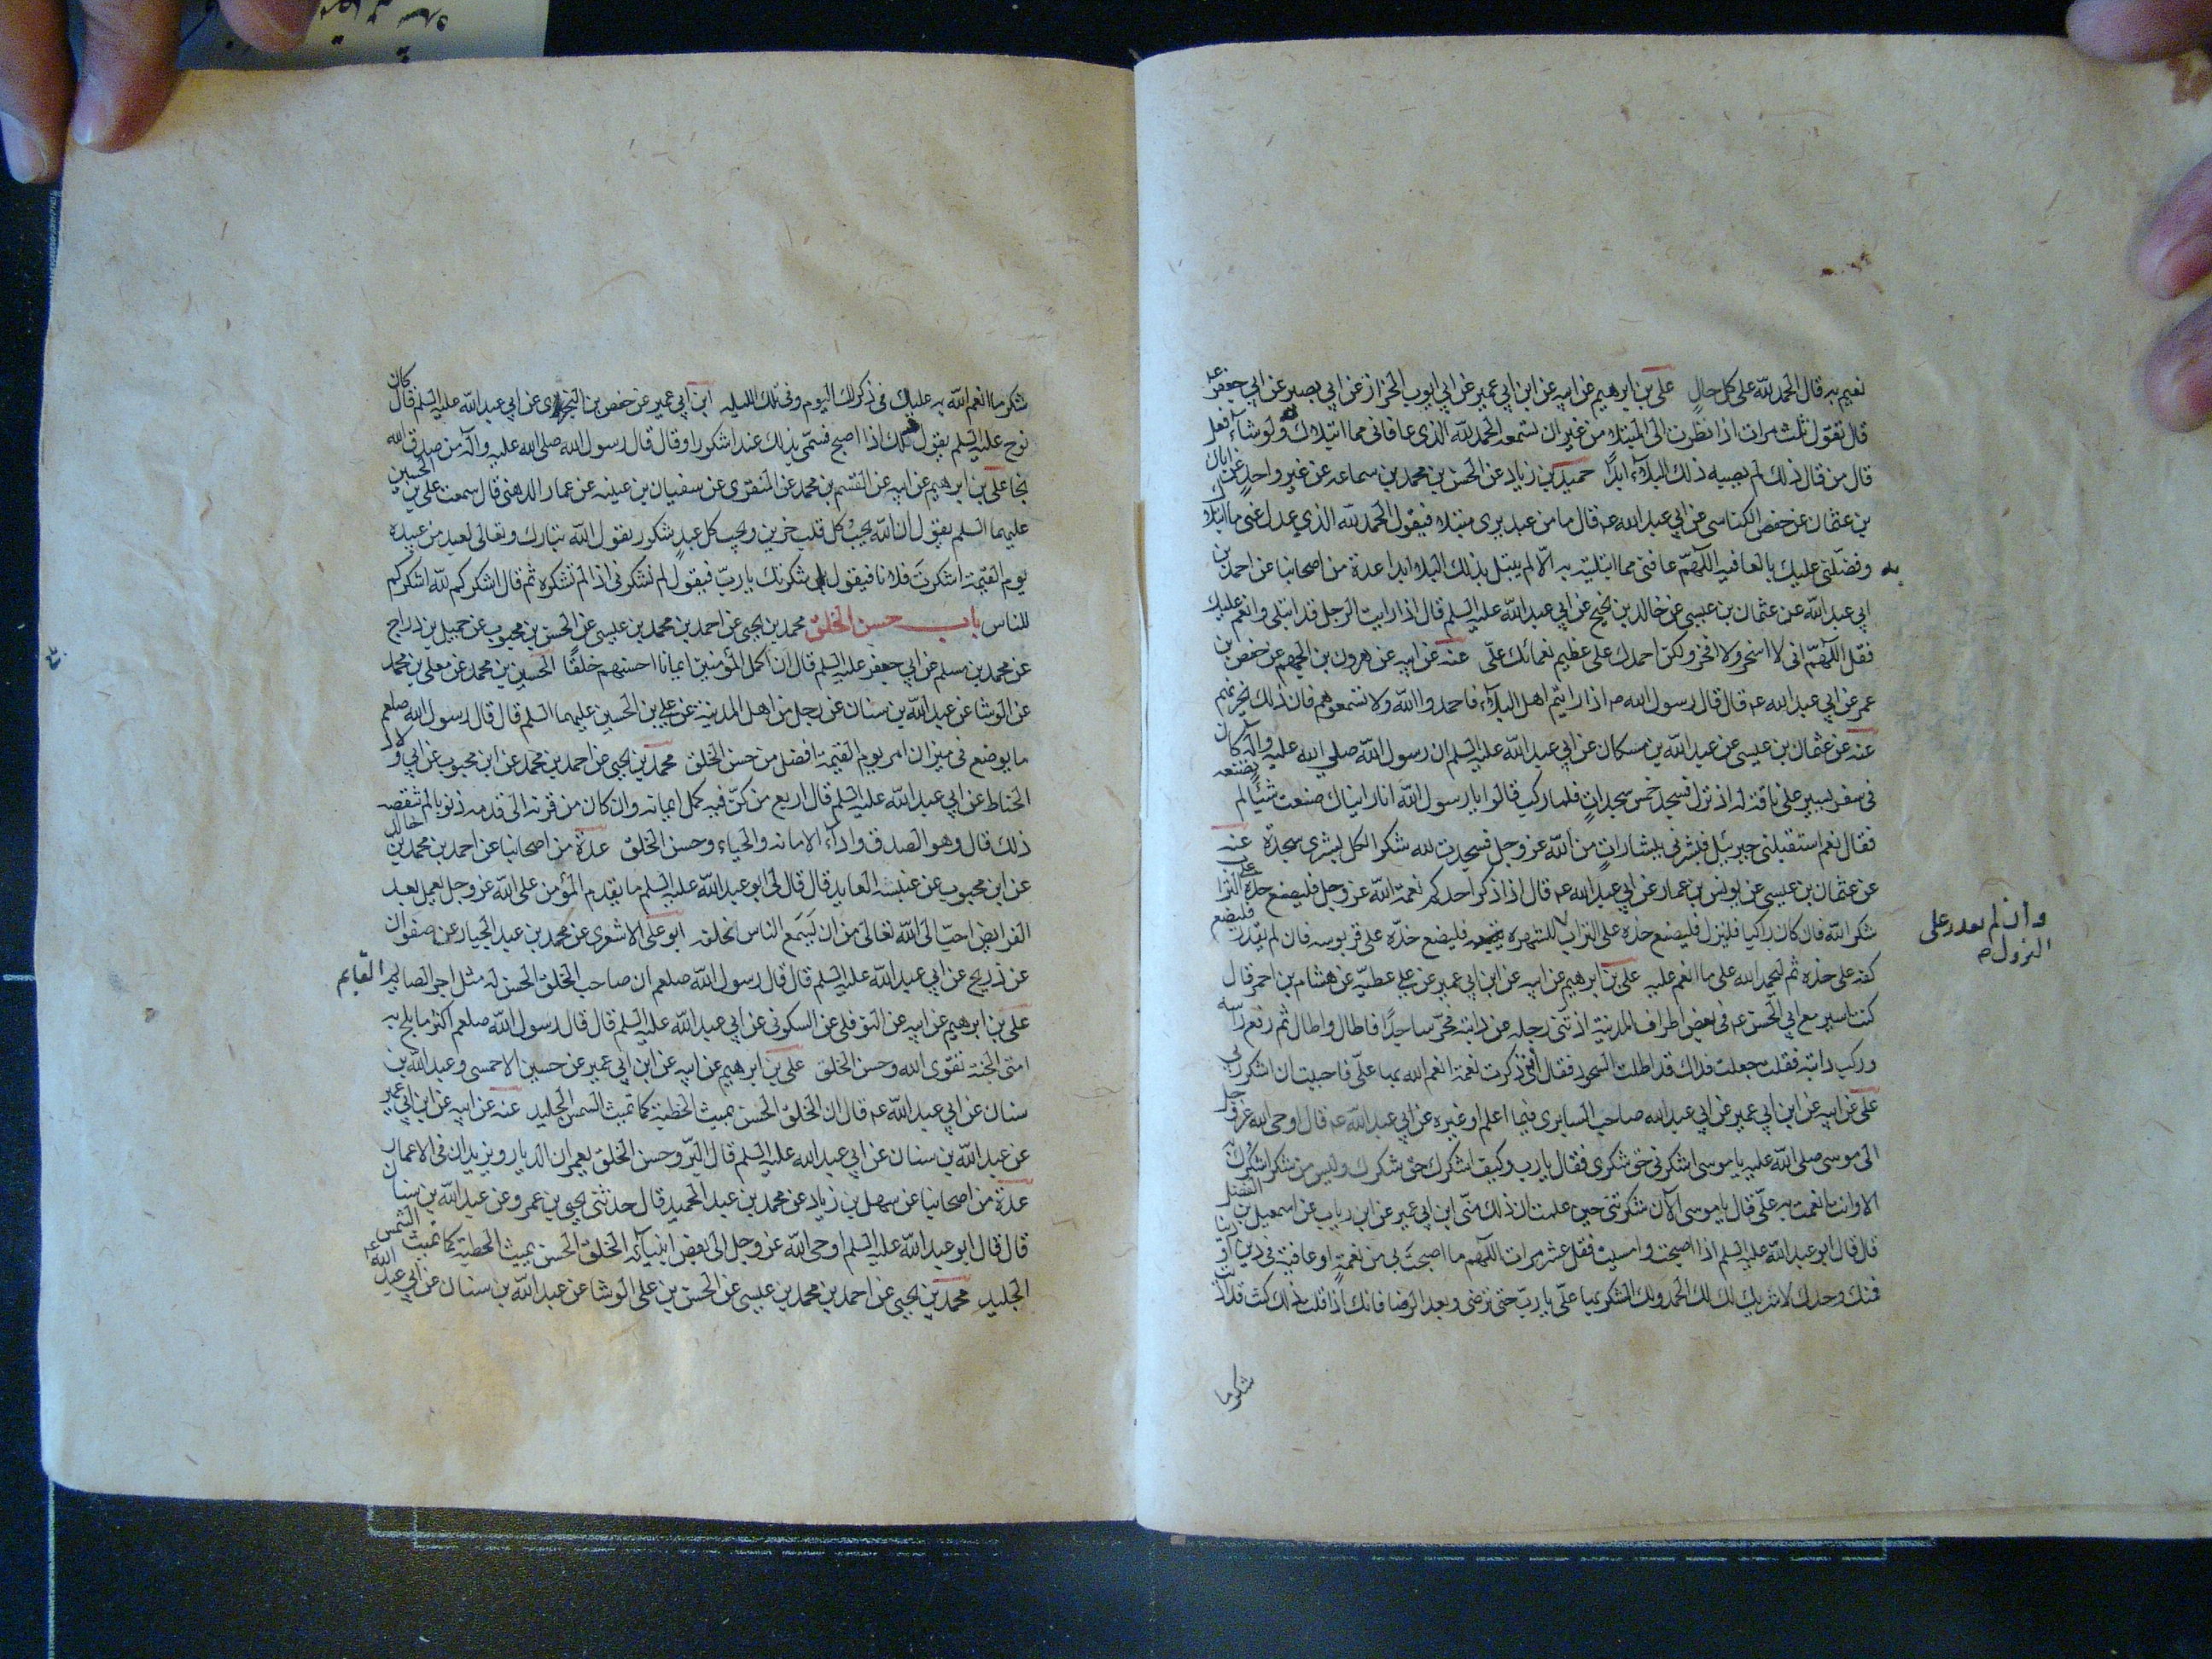 نغتم به قال الحمد لله على كل حال على بن ابرهيم عن ابيه عن ابن ابي عمير عن ابي ايوب الخزاز عن ابي بصير عن ابي جعفر عه
قال تقول ثلث مرات اذا نظرت الى المبتلا من غير ان تسمعه الحمد لله الذى عافانى مما ابتلاك ولو شاء فعل
قال من قال ذلك لم يصبه ذلك البلاء ابدًا حميد بن زياد عن الحسن بن محمد بن سماعه عن غير واحد عن ابان
بن عثمان عن حفص الكناسى عن ابي عبد الله عه قال ما من عبد يرى مبتلا فيقول الحمد لله الذي عدل عنى ما ابتلاك
به وفضلنى عليك بالعافيه اللهم عافنى مما ابتليته به الا لم يبتل بذلك البلاء ابدا عدة من اصحابنا عن احمد بن
ابي عبد الله عن عثمان بن عيسى عن خالد بن نجيح عن ابي عبد الله عليه السلم قال اذا رايت الرجل قد ابتلى وانعم عليك
فقل اللهم انى لا اسخر ولا افخر ولكن احمدك على عظيم نعمائك علىّ عنه عن ابيه عن هرون بن الجهم عن حفص بن
عمر عن ابي عبد الله عه قال قال رسول الله صه اذا رايتم اهل البلاء فاحمدوا الله ولا تسمعوهم فان ذلك يحزنهم
عنه عن عثمان بن عيسى عن عبد الله بن مسكان عن ابي عبد الله عليه السلم ان رسول الله صلى الله عليه واله كان
فى سفر يسير على ناقة له اذ نزل فسجد خمس سجدات فلما ركب قالوا يا رسول الله انا رايناك صنعت شيئا لم تصنعه
فقال نعم استقبلنى جبرئيل فبشرنى ببشارات من الله عز وجل فسجدت لله شكرا لكل بشرى سجدة عنه
عن عثمان بن عيسى عن يونس بن عمار عن ابي عبد الله عه قال اذا ذكر احدكم نعمة الله عز وجل فليضع خده على التراب
شكرا لله فان كان راكبا فلينزل فليضع خده على التراب للشهره فليضع خده على قربوسه فان لم يقدر فليضع
وان لم يقدر على
النزول صح
كفه على خده ثم ليحمد الله على ما انعم عليه على بن ابرهيم عن ابيه عن ابن ابي عمير عن علي عطيه عن هشام بن احمر قال
كنت اسير مع ابي الحسن عه فى بعض اطراف المدينة اذ ثنى رجله عن دابته فخر ساجدًا فاطال واطال ثم رفع راسه
وركب دابته فقلت جعلت فداك قد اطلت السجود فقال اننى ذكرت نعمة انعم الله بها علىّ فاحببت ان اشكر ربى
على عن ابيه عن ابن ابي عمير عن ابي عبد الله صاحب السابرى فيما اعلم او غيره عن ابي عبد الله عه قال اوحى الله عز وجل
الى موسى صلى الله عليه يا موسى اشكرنى حق شكرى فقال يا رب وكيف اشكرك حق شكرك وليس من شكر اشكرك به
الا وانت انعمت به علىّ قال يا موسى الآن شكرتنى حين علمت ان ذلك منى ابن ابي عمير عن ابن رياب عن اسمعيل بن الفضل
قال قال ابو عبد الله عليه السلم اذا اصبحت وامسيت فقل عشر مرات اللهم ما اصبحت بى من نعمةٍ او عافية فى دين او دنيا
فمنك وحدك لا شريك لك لك الحمد ولك الشكر بها علىّ يا رب حتى ترضى وبعد الرضا فانك اذا قلت ذلك كنت قد اديت
شكر ما
شكر ما انعم الله به عليك فى ذكر لك اليوم وفى تلك الليله ابن ابي عمير عن حفص بن البخترى عن ابي عبد الله عليه السلم قال كان
نوح عليه السلم يقول ذلك اذا اصبح فسمى بذلك عبدا شكورا وقال قال رسول الله صلى الله عليه واله من صدق الله
نجا على بن ابرهيم عن ابيه عن القسم بن محمد عن المنقرى عن سفيان بن عيينه عن عمار الدهنى قال سمعت على بن الحسين
عليهما السلم يقول ان الله يحب كل قلب حزين ويحب كل عبد شكور يقول الله تبارك وتعالى لعبد من عبيده
يوم القيمة اشكرت فلانا فيقول بل شكرتك يا رب فيقول لم تشكرنى اذ لم تشكره ثم قال اشكركم لله اشكركم
للناس باب حسن الخلق محمد بن يحيى عن احمد بن محمد بن عيسى عن الحسن بن محبوب عن جميل بن دراج
عن محمد بن مسلم عن ابي جعفر عليه السلم قال ان اكمل المؤمنين ايمانا احسنهم خلقًا الحسين بن محمد عن معلى بن محمد
عن الوشا عن عبد الله بن سنان عن رجل من اهل المدينة عن علي بن الحسين عليهما السلم قال قال رسول الله صلعم
ما يوضع فى ميزان امرء يوم القيمة افضل من حسن الخلق محمد بن يحيى عن احمد بن محمد عن ابن محبوب عن ابي ولاد
الحناط عن ابي عبد الله عليه السلم قال اربع من كنّ فيه كمل ايمانه وان كان من قرنه الى قدمه ذنوبا لم تنقصه
ذلك قال وهو الصدق واداء الامانه والحياء وحسن الخلق عدة من اصحابنا عن احمد بن محمد بن خالد
عن ابن محبوب عن عنبسة العابد قال قال لى ابو عبد الله عليه السلم ما يقدم المؤمن على الله عز وجل بعمل بعد
الفرايض احبّ الى الله تعالى من ان يسع الناس بخلقه ابو على الاشعرى عن محمد بن عبد الجبار عن صفوان
عن ذريح عن ابي عبد الله عليه السلم قال قال رسول الله صلعم ان صاحب الخلق الحسن له مثل اجر الصايم القايم
على بن ابرهيم عن ابيه عن النوفلى عن السكونى عن ابي عبد الله عليه السلم قال قال رسول الله صلعم اكثر ما يلج به
امتى الجنة تقوى الله وحسن الخلق على بن ابرهيم عن ابيه عن ابن ابي عمير عن حسين الاحمسى وعبد الله بن
سنان عن ابي عبد الله عه قال ان الخلق الحسن يميث الخطيئة كما تميث الشمس الجليد عنه عن ابيه عن ابن ابي عمير
عن عبد الله بن سنان عن ابي عبد الله عليه السلم قال البر وحسن الخلق يعمران الديار ويزيدان فى الاعمار
عدة من اصحابنا عن سهل بن زياد عن محمد بن عبد الحميد قال حدثنى يحيى بن عمرو عن عبد الله بن سنان
قال قال ابو عبد الله عليه السلم اوحى الله عز وجل الى بعض انبيائه الخلق الحسن يميث الخطيئة كما تميث الشمس
الجليد محمد بن يحيى عن احمد بن محمد بن عيسى عن الحسن بن على الوشا عن عبد الله بن سنان عن ابي عبد الله عه